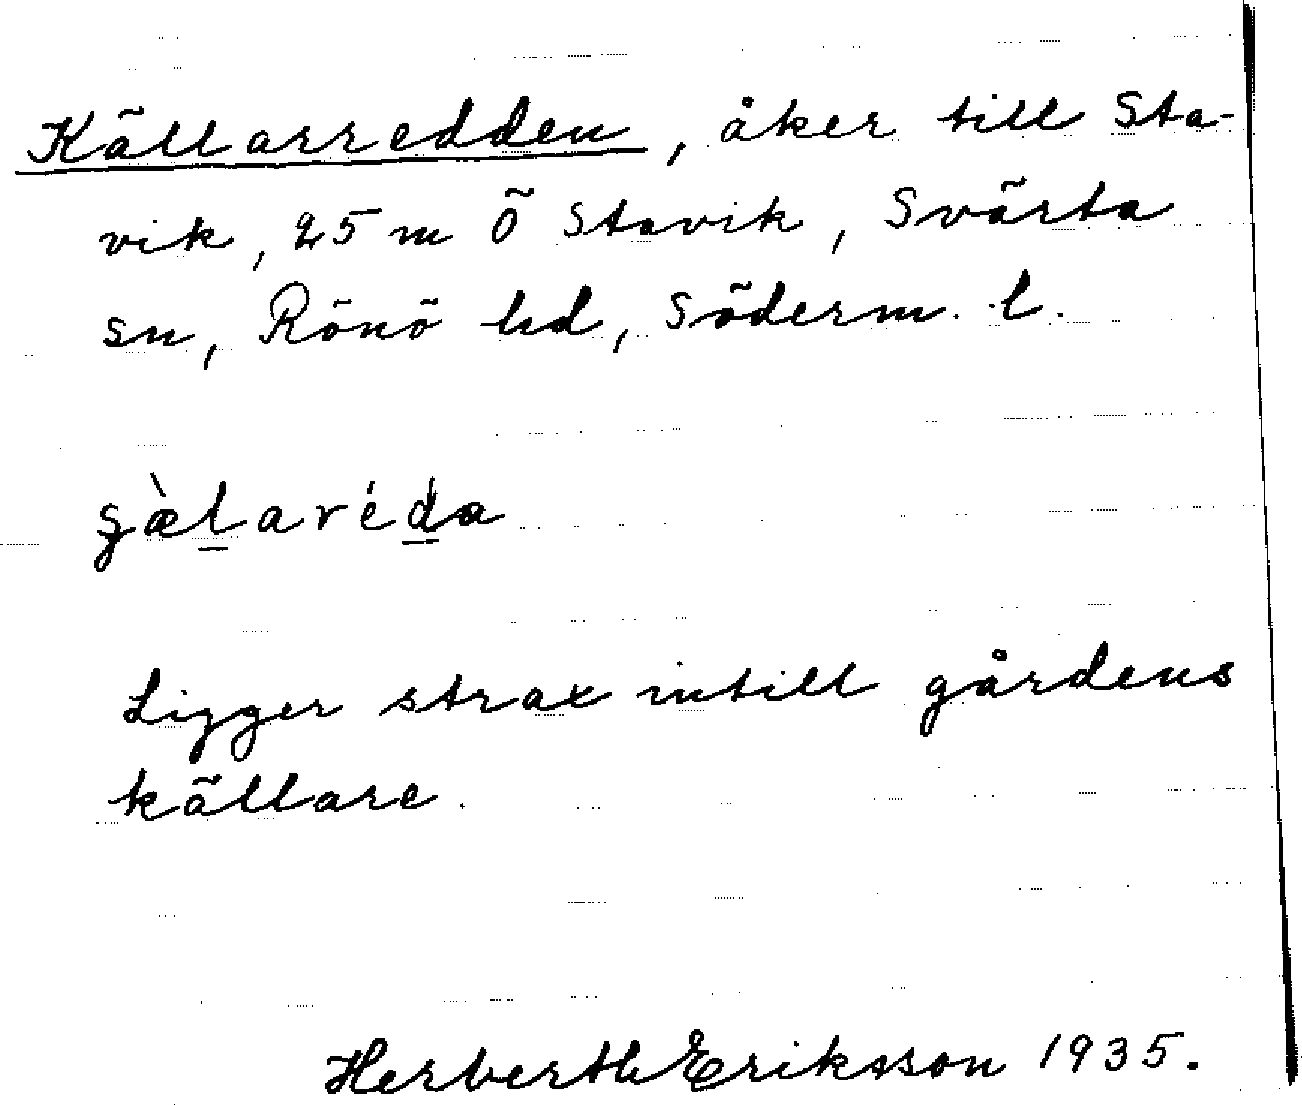 Källarredden, åker till Sta-
vik, 25 m Ö Stavik, Svärta
sn, Rönö hd, Söderm. l.
Ligger strax intill gårdens
källare.
Herberth Eriksson 1935.